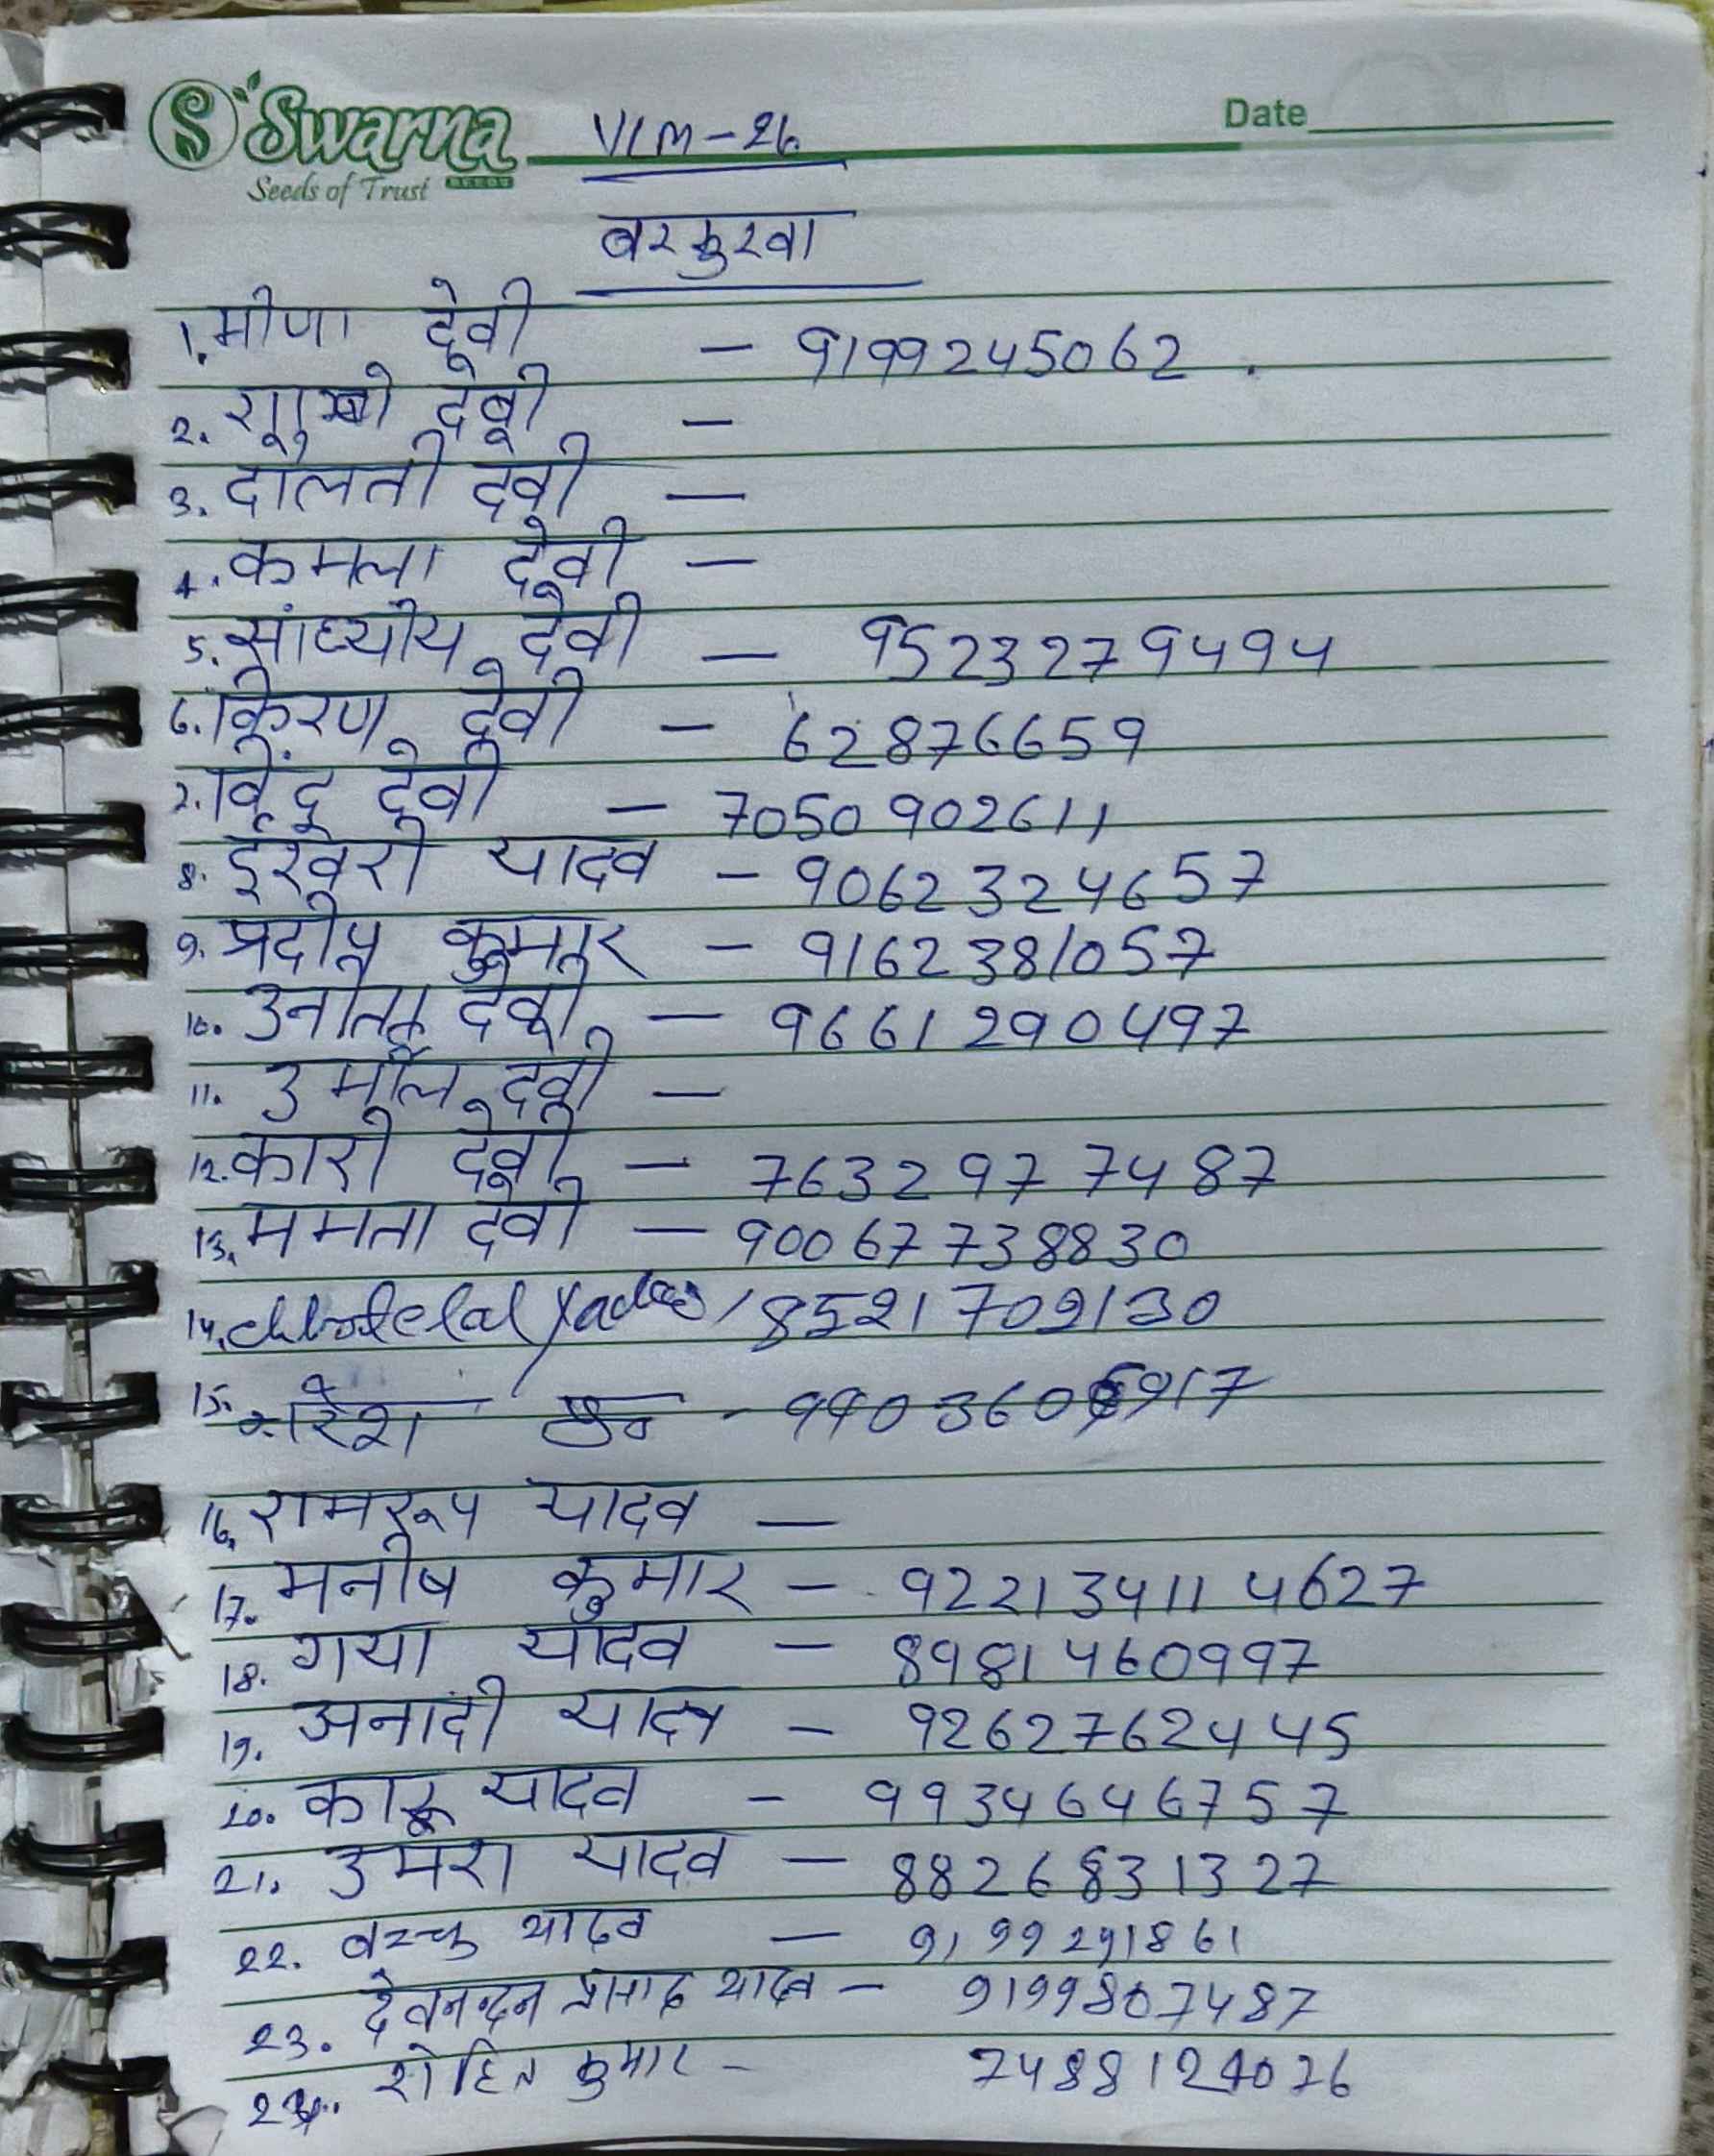 Swarna
Seeds of Trust
Date
VLM-26
बरकुरवा
1. मीणा देवी - 9199245062
2. देवी -
3. दौलती देवी -
4. कमला देवी -
5. देवी - 9523279494
6. किरण देवी - 62876659
7. विंदु देवी - 7050902611
8. ईश्वरी यादव - 9062324657
9. प्रदीप कुमार - 9162381057
10. देवी - 9661290497
11. उर्मील देवी -
12. कारी देवी - 7632977487
13. ममता देवी - 90067738830
14. chhotelal Yadav / 8521709130
15. नरेश
16. रामरूप यादव -
17. मनीष कुमार - 922134114627
18. गया यादव - 8981460997
19. अनादी यादव - 9262762445
20. कारू यादव - 9934646757
21. उमेश यादव - 8826831327
22. बच्चु यादव - 9199291861
23. देवनन्दन प्रसाद यादव - 9199807487
24. रोहित कुमार - 7488124076